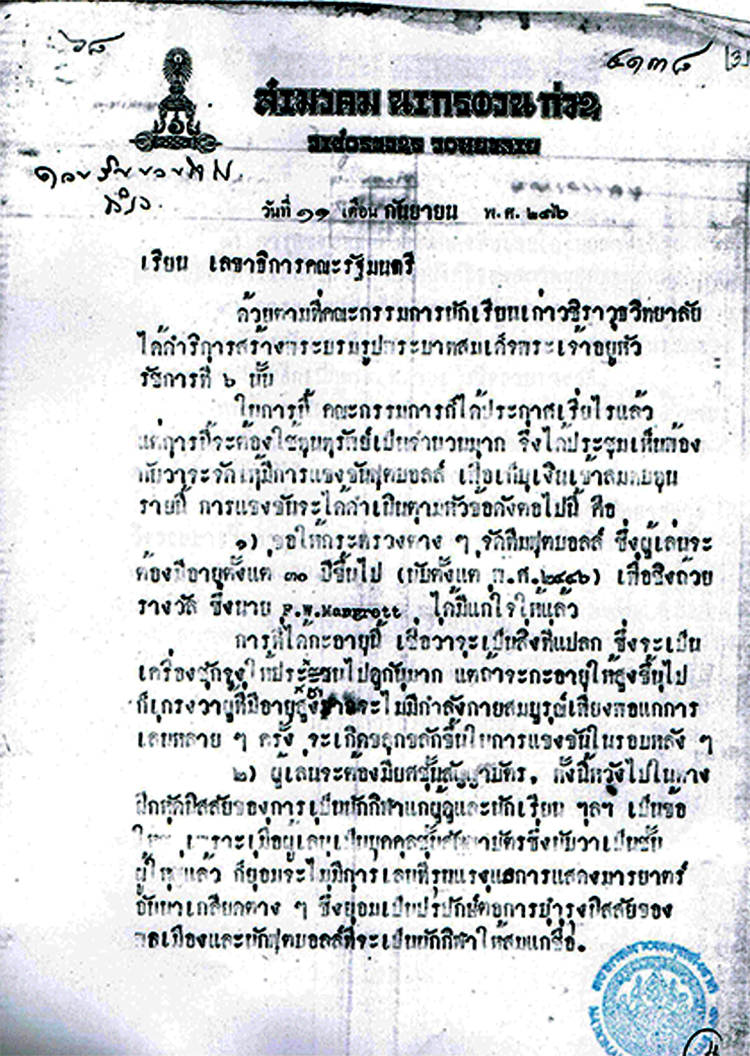 ๖๘
๕๑๓๘
สมาคม นักเรียนเก่า
วันที่ ๑๑ เดือน กันยายน พ.ศ. ๒๔๗๖
เรียน เลขาธิการคณะรัฐมนตรี
ด้วยตามที่คณะกรรมการนักเรียนเก่าวชิราวุธวิทยาลัย
ได้ดำริการสร้างพระบรมรูปพระบาทสมเด็จพระเจ้าอยู่หัว
รัชการที่ ๖ นั้น
ในการนี้ คณะกรรมการก็ได้ประกาศเรี่ยไรแล้ว
แต่การนี้จะต้องใช้ทุนทรัพย์เป็นจำนวนมาก จึงได้ประชุมเห็นพ้อง
กันว่าจะจัดให้มีการแข่งขันฟุตบอลล์ เพื่อเก็บเงินเข้าสมทบทุน
รายนี้ การแข่งขันจะได้ดำเนินตามหัวข้อดังต่อไปนี้ คือ
๑) ขอให้กระทรวงต่าง ๆ จัดทีมฟุตบอลล์ ซึ่งผู้เล่นจะ
ต้องมีอายุตั้งแต่ ๓๐ ปีขึ้นไป (นับตั้งแต่ พ.ศ.๒๔๔๖) เพื่อชิงถ้วย
รางวัล ซึ่งนาย ได้มีแก่ใจให้แล้ว
การที่ได้กะอายุนี้ เชื่อว่าจะเป็นสิ่งที่แปลก ซึ่งจะเป็น
เครื่องชักจูงให้ประชาชนไปดูกันมาก แต่ถ้าจะกะอายุให้สูงขึ้นไป
ก็เกรงว่าผู้ที่มีอายุสูงจะไม่มีกำลังกายสมบูรณ์เพียงพอแก่การ
เล่นหลาย ๆ ครั้ง จะเกิดขลุกขลักขึ้นในการแข่งขันในรอบหลัง ๆ
๒) ผู้เล่นจะต้องมียศชั้นสัญญาบัตร, ทั้งนี้หวังไปในทาง
ฝึกหัดนิสสัยของการเป็นนักกีฬาแก่ผู้ดูและนักเรียน ๆลๆ เป็นข้อ
ใหญ่ เพราะเมื่อผู้เล่นเป็นบุคคลชั้นสัญญาบัตรซึ่งนับว่าเป็นชั้น
ผู้ใหญ่แล้ว ก็ย่อมจะไม่มีการเล่นที่รุนแรงและการแสดงมารยาตร์
อันน่าเกลียดต่าง ๆ ซึ่งย่อมเป็นปรปักษ์ต่อการบำรุงนิสสัยของ
พลเมืองและนักฟุตบอลล์ที่จะเป็นนักกีฬาให้สมแก่ชื่อ.